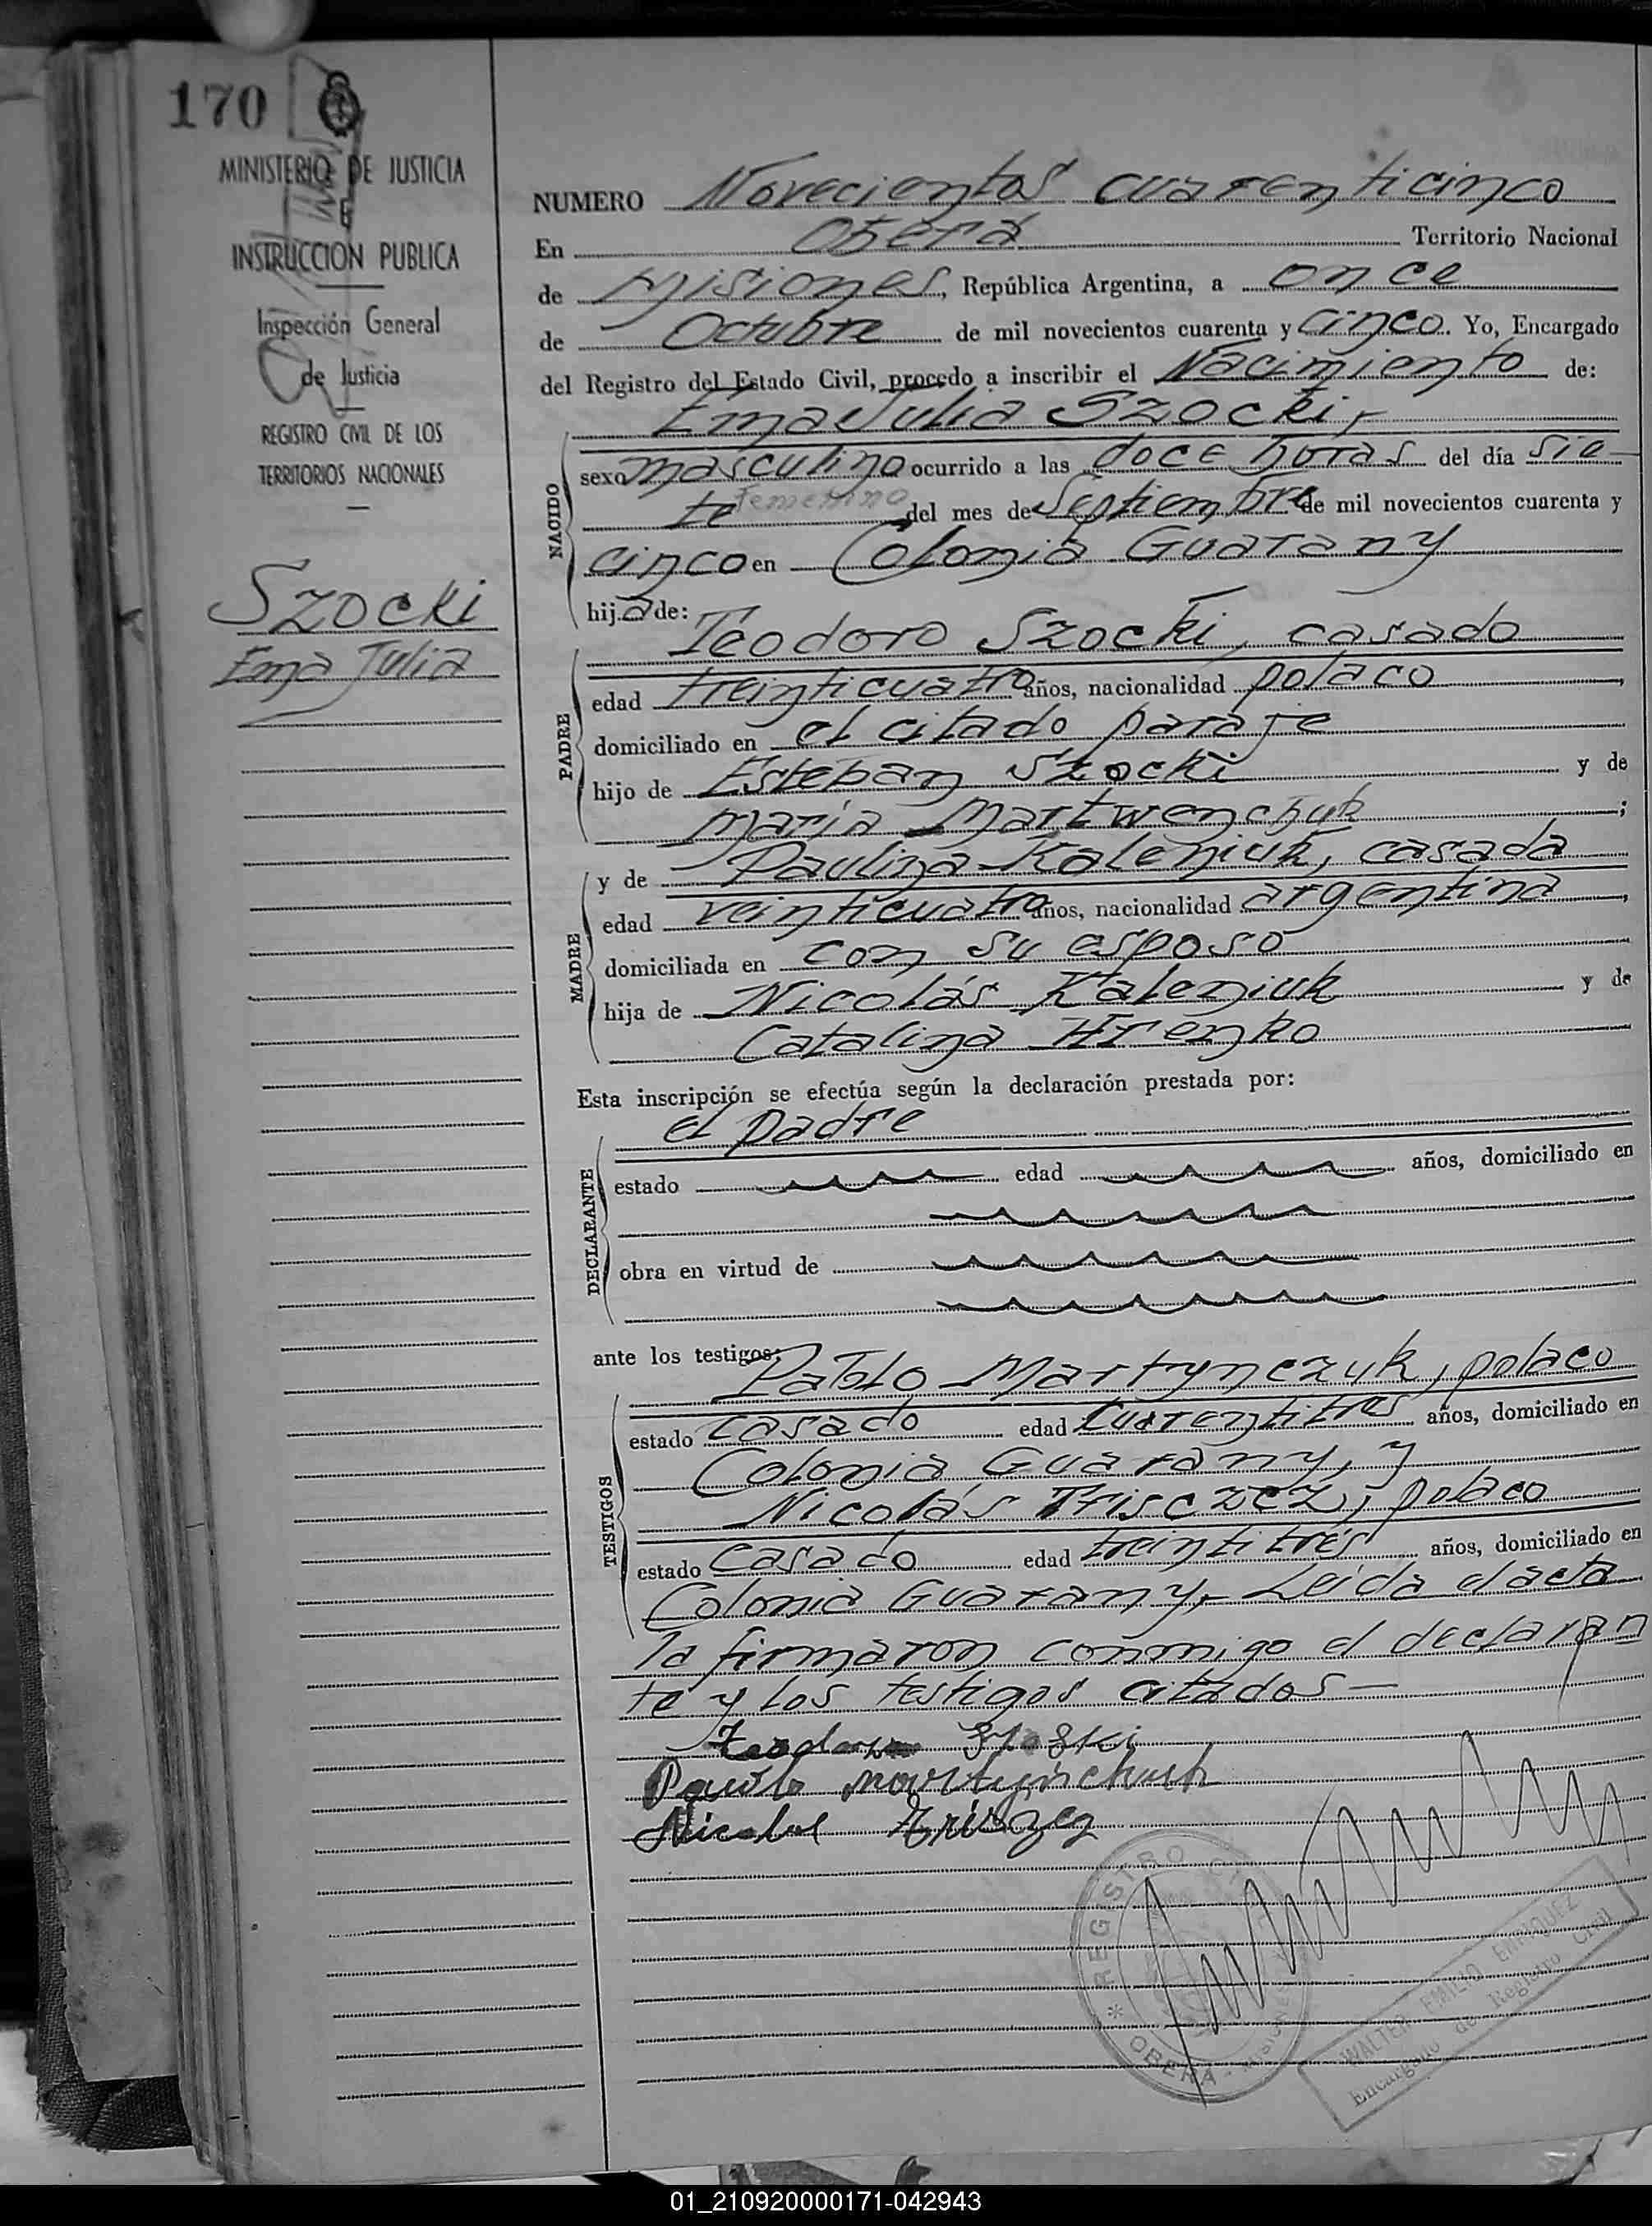 170
MINISTERIO DE JUSTICIA
E
INSTRUCCION PUBLICA
Inspección General
de Justicia
REGISTRO CIVIL DE LOS
TERRITORIOS NACIONALES
Szocki
Ema Julia
NUMERO Novecientos cuarenticinco
En Oberá Territorio Nacional
de Misiones, República Argentina, a once
de Octubre de mil novecientos cuarenta y cinco. Yo, Encargado
del Registro del Estado Civil, procedo a inscribir el Nacimiento de:
Ema Julia Szocki,-
NACIDO
sexo masculino ocurrido a las doce horas del día sie-
te Femenino del mes de Septiembre de mil novecientos cuarenta y
cinco en Colonia Guarany
hija de:
Teodoro Szocki, casado
PADRE
edad treinticuatro años, nacionalidad polaco,
domiciliado en el citado paraje
hijo de Esteban Szocki y de
María Martwenchuk;
y de Paulina Kaleniuk, casada
MADRE
edad veinticuatro años, nacionalidad argentina,
domiciliada en con su esposo
hija de Nicolás Kaleniuk y de
Catalina Hrenko
Esta inscripción se efectúa según la declaración prestada por:
el padre
DECLARANTE
estado edad años, domiciliado en
obra en virtud de
ante los testigos:
Pablo Martynczuk, polaco
TESTIGOS
estado casado edad cuarentitres años, domiciliado en
Colonia Guarany, y
Nicolás Trisczcz, polaco
estado casado edad treintitrés años, domiciliado en
Colonia Guarany,- Leída el acta
la firmaron conmigo el declaran
te y los testigos citados-
Pawlo Martyinchuk
REGISTRO CIVIL
* OBERA - MISIONES
WALTER EMILIO ENRIQUEZ
Encargado de Registro Civil
01_210920000171-042943